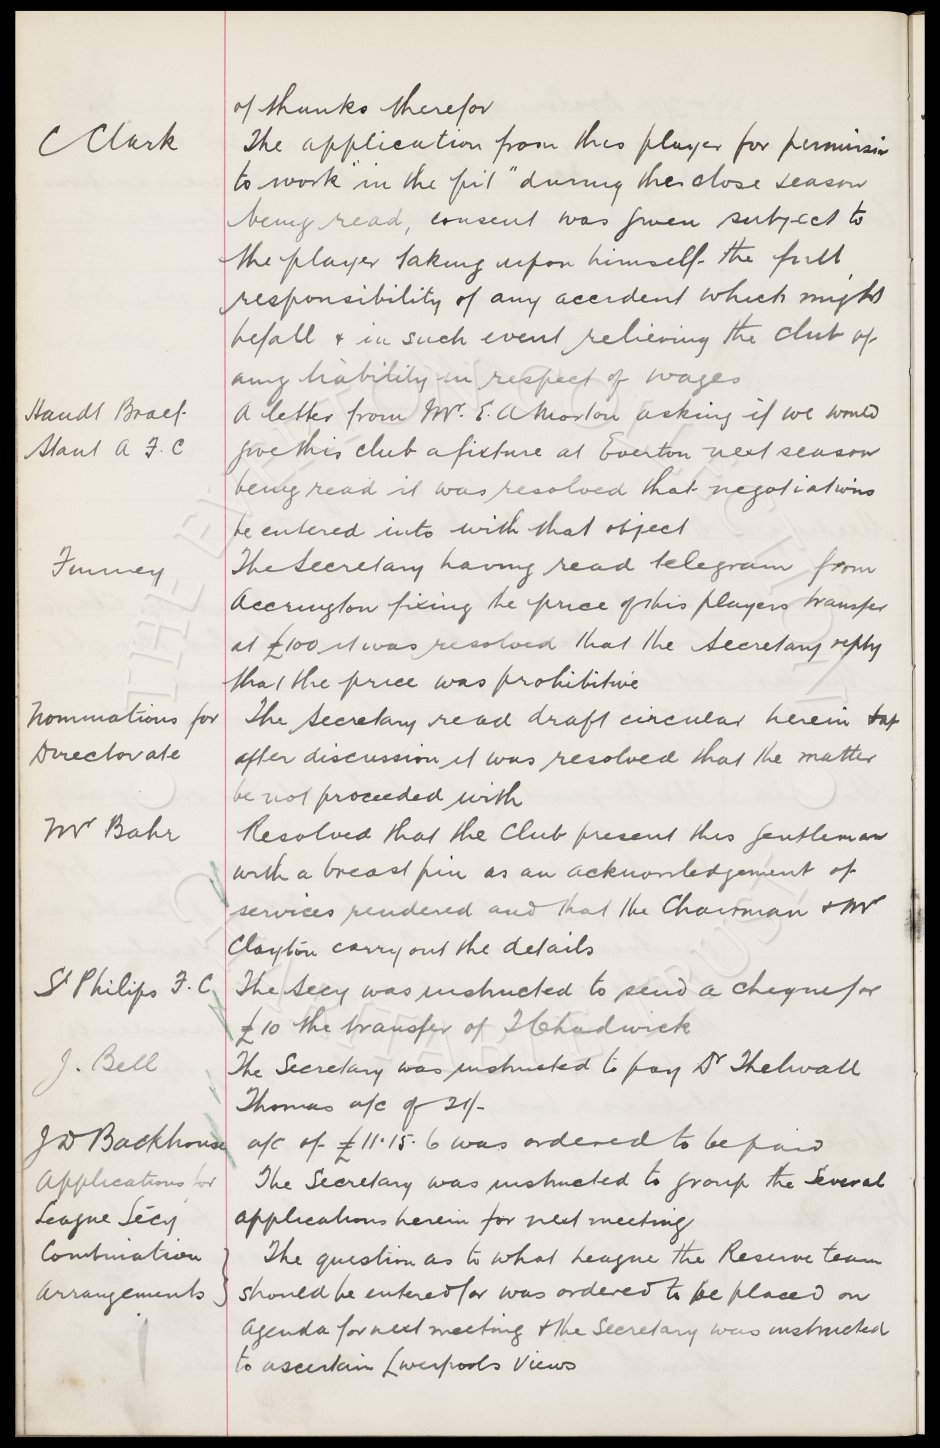 of thanks therefor
C Clark
The application from this player for permission
to work "in the pit" during the close season
being read, consent was given subject to
the player taking upon himself the full
responsibility of any accident which might
befall & in such event relieving the club of
any liability in respect of wages
Handl Braef.
Stant A F. C
A letter from Mr. E. A Morton asking if we would
give this club a fixture at Everton next season
being read it was resolved that negotiations
be entered into with that object
Finney
The Secretary having read telegram from
Accrington fixing the price of this players transfer
at £100 it was resolved that the Secretary reply
that the price was prohibitive
Nominations for
Directorate
The Secretary read draft circular herein &
after discussion it was resolved that the matter
be not proceeded with
Mr Bahr
Resolved that the Club present this gentleman
with a breast pin as an acknowledgement of
services rendered and that the Chairman & Mr
Clayton carry out the details
St Philips F. C.
The Secy was instructed to send a cheque for
£10 the transfer of T Chadwick
J. Bell
The Secretary was instructed to pay Dr Thelwall
Thomas a/c of 21/-
J D Backhouse
a/c of £11.15.6 was ordered to be paid
Applications for
League Secy
The Secretary was instructed to group the several
applications herein for next meeting
Combination
Arrangements
The question as to what League the Reserve team
should be entered for was ordered to be placed on
agenda for next meeting & the Secretary was instructed
to ascertain Liverpools views